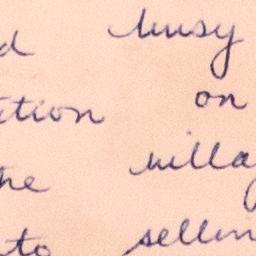 d busy
ition on
he villag
to sellin